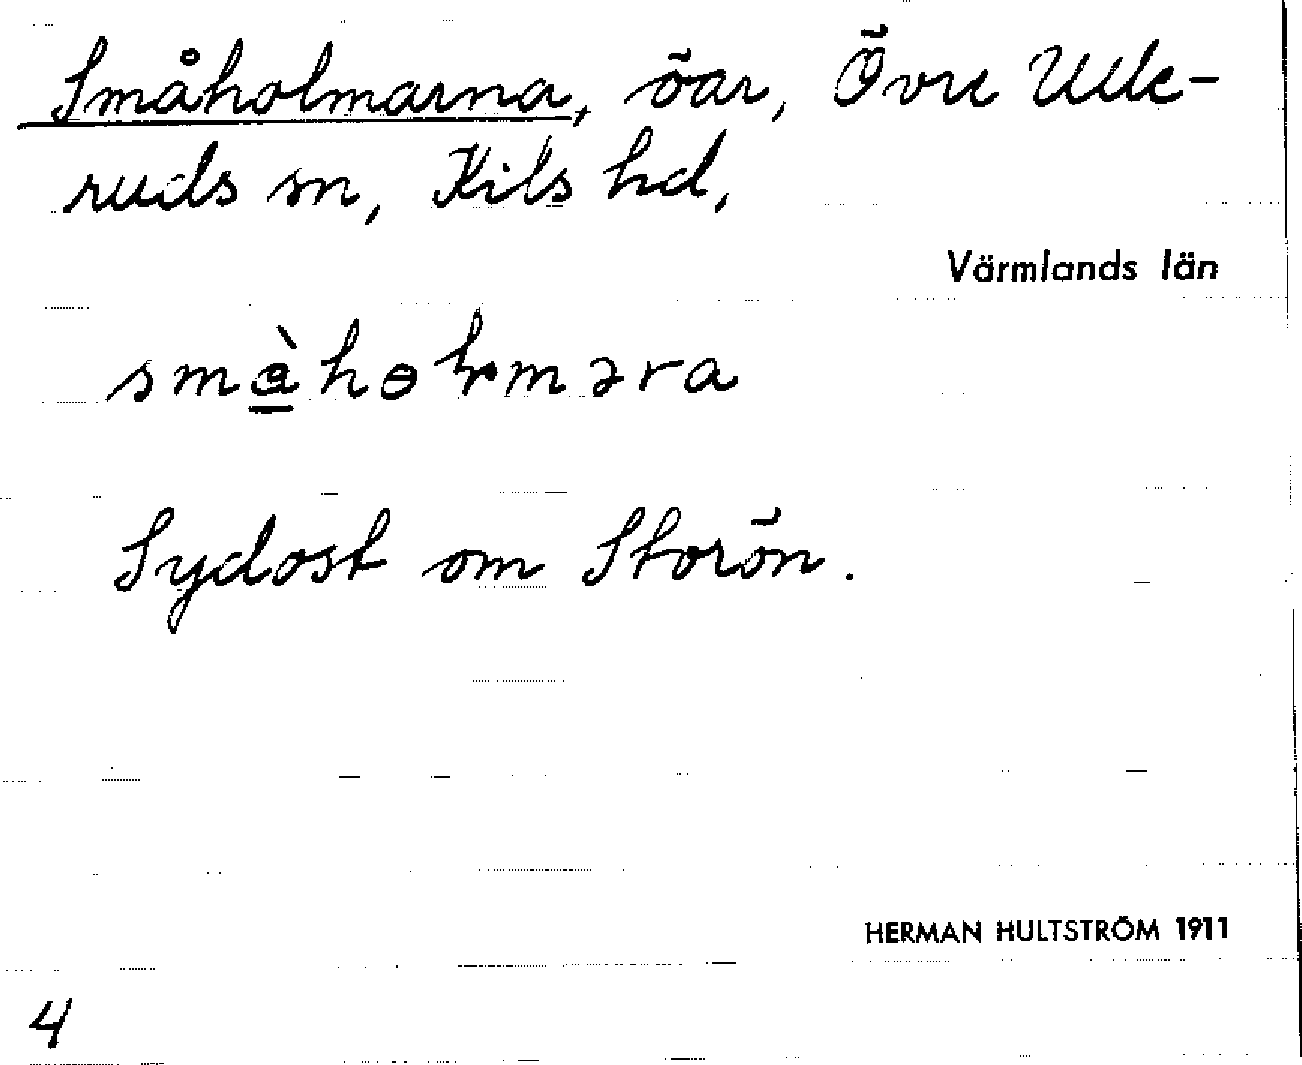 Småholmarna, öar, Övre Ulle-
ruds sn, Kils hd,
Värmlands län
smàhɵɫməra
Sydost om Storön.
HERMAN HULTSTRÖM 1911
4